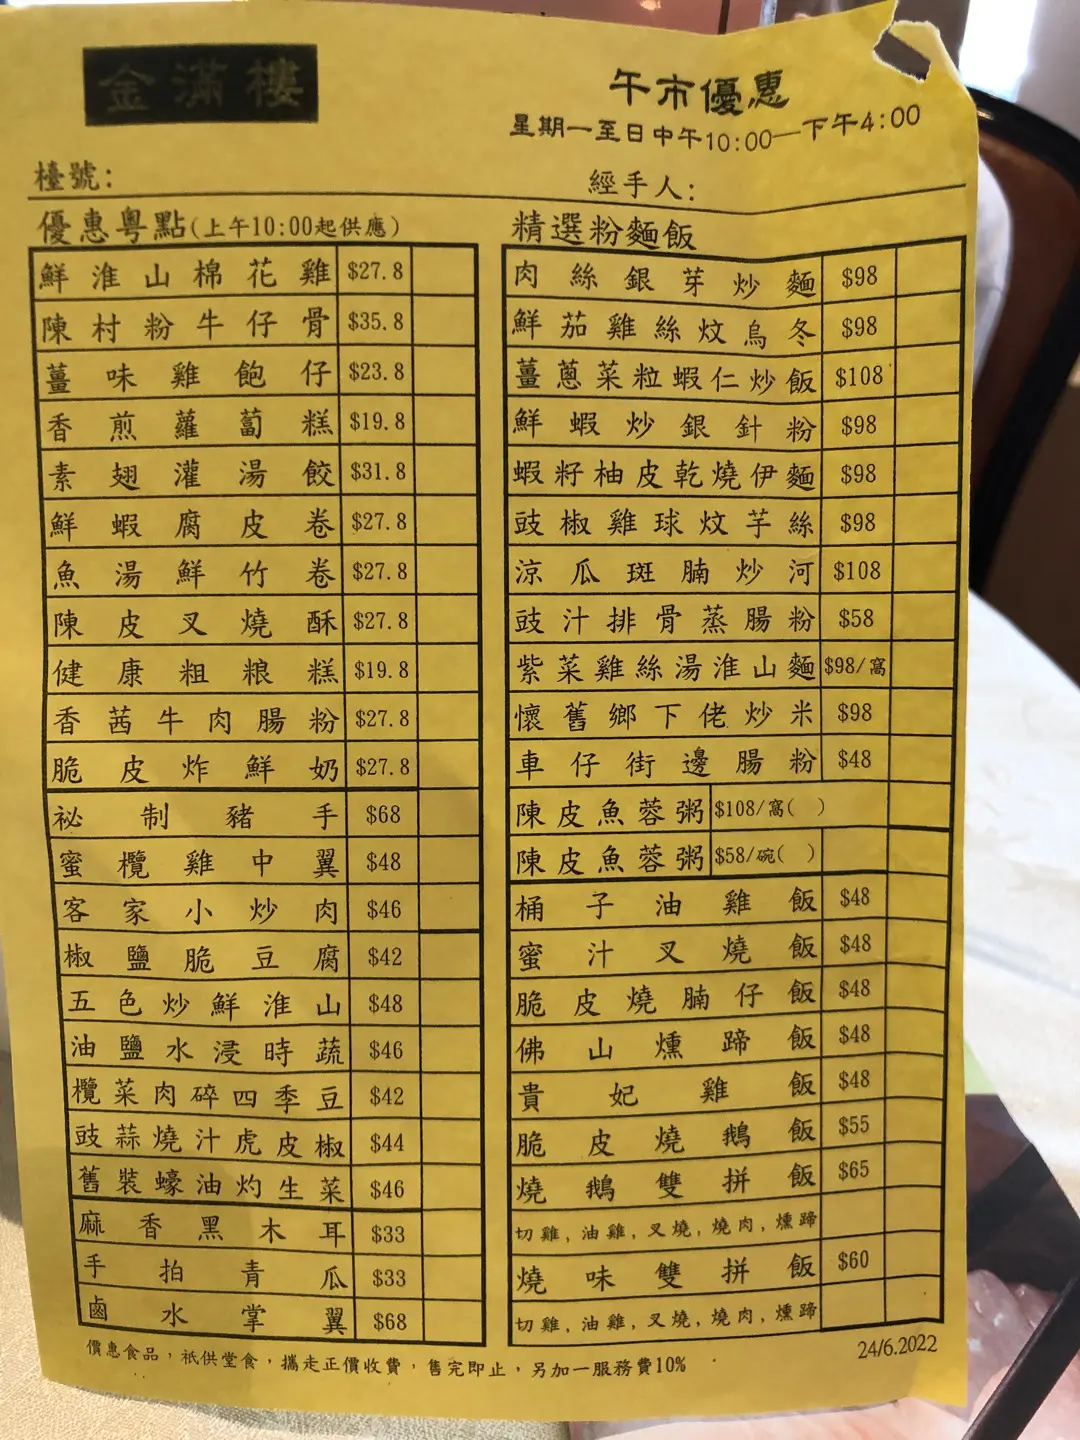 金滿樓
午市優惠
星期一至日中午10:00—下午4:00
檯號:
經手人:
優惠粵點(上午10:00起供應)
鮮淮山棉花雞 $27.8
陳村粉牛仔骨 $35.8
薑味雞飽仔 $23.8
香煎蘿蔔糕 $19.8
素翅灌湯餃 $31.8
鮮蝦腐皮卷 $27.8
魚湯鮮竹卷 $27.8
陳皮叉燒酥 $27.8
健康粗粮糕 $19.8
香茜牛肉腸粉 $27.8
脆皮炸鮮奶 $27.8
祕制豬手 $68
蜜欖雞中翼 $48
客家小炒肉 $46
椒鹽脆豆腐 $42
五色炒鮮淮山 $48
油鹽水浸時蔬 $46
欖菜肉碎四季豆 $42
豉蒜燒汁虎皮椒 $44
舊裝蠔油灼生菜 $46
麻香黑木耳 $33
手拍青瓜 $33
鹵水掌翼 $68
精選粉麵飯
肉絲銀芽炒麵 $98
鮮茄雞絲炆烏冬 $98
薑蔥菜粒蝦仁炒飯 $108
鮮蝦炒銀針粉 $98
蝦籽柚皮乾燒伊麵 $98
豉椒雞球炆芋絲 $98
涼瓜斑腩炒河 $108
豉汁排骨蒸腸粉 $58
紫菜雞絲湯淮山麵 $98/窩
懷舊鄉下佬炒米 $98
車仔街邊腸粉 $48
陳皮魚蓉粥 $108/窩( )
陳皮魚蓉粥 $58/碗( )
桶子油雞飯 $48
蜜汁叉燒飯 $48
脆皮燒腩仔飯 $48
佛山燻蹄飯 $48
貴妃雞飯 $48
脆皮燒鵝飯 $55
燒鵝雙拼飯 $65
切雞, 油雞, 叉燒, 燒肉, 燻蹄
燒味雙拼飯 $60
切雞, 油雞, 叉燒, 燒肉, 燻蹄
價惠食品，衹供堂食，攜走正價收費，售完即止，另加一服務費10%
24/6.2022